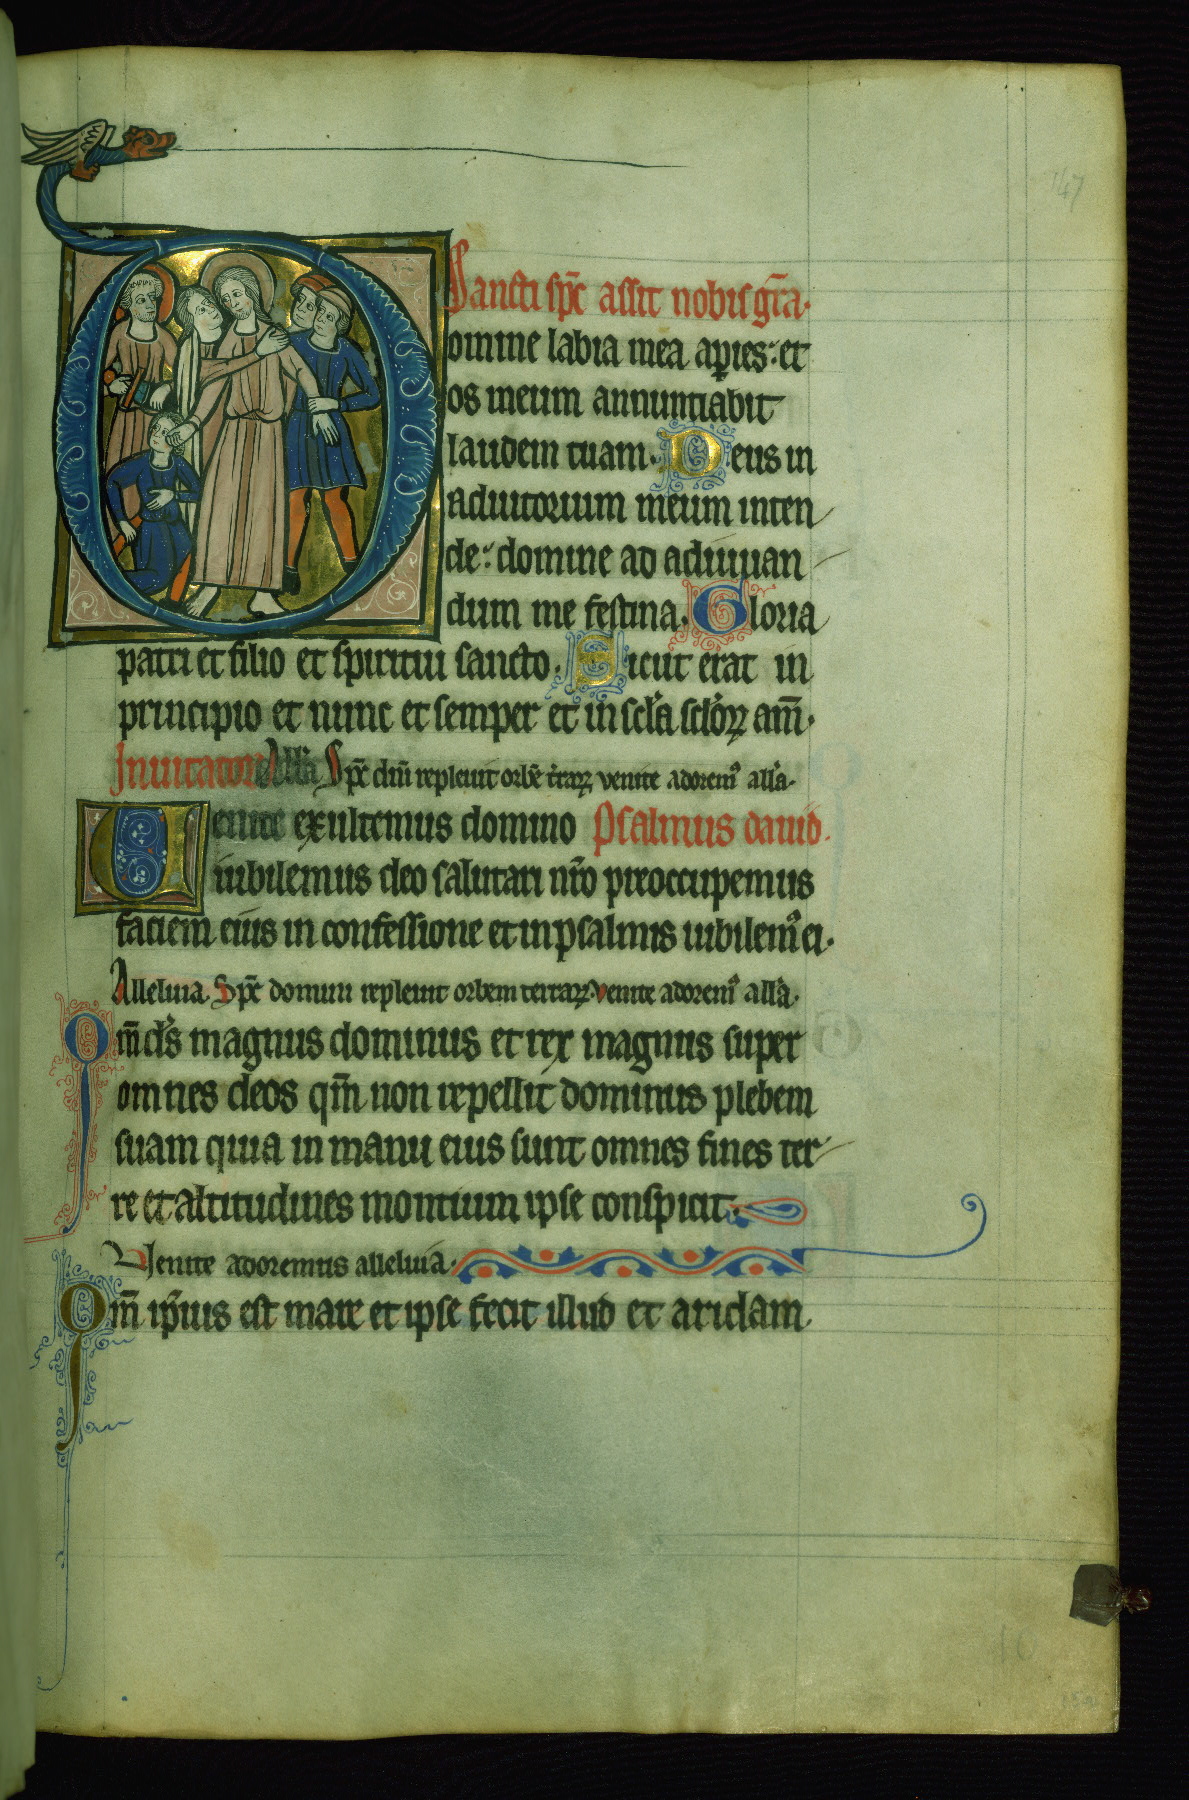 147
Sancti spc assit nobis gra.
omine labia mea apies: et
os meum annuntiabit
laudem tuam. Deus in
adiutorium meum inten
de: domine ad adiuuan
dum me festina. Gloria
patri et filio et spiritui sancto. Sicut erat in
principio et nunc et semper et in scla sclor am.
Inuitator Alla Spc dni repleuit orbe trar venite adorem alla.
Uenite exultemus domino Psalmus dauid.
iubilemus deo salutari nro preoccupemus
faciem eius in confessione et in psalmis iubilem ei.
Alleluia. Spc domini repleuit orbem terrar venite adorem alla.
Qm ds magnus dominus et rex magnus super
omnes deos qm non repellit dominus plebem
suam quia in manu eius sunt omnes fines ter
re et altitudines montium ipse conspicit.
Uenite adoremus alleluia.
Qm ipius est mare et ipse fecit illud et aridam